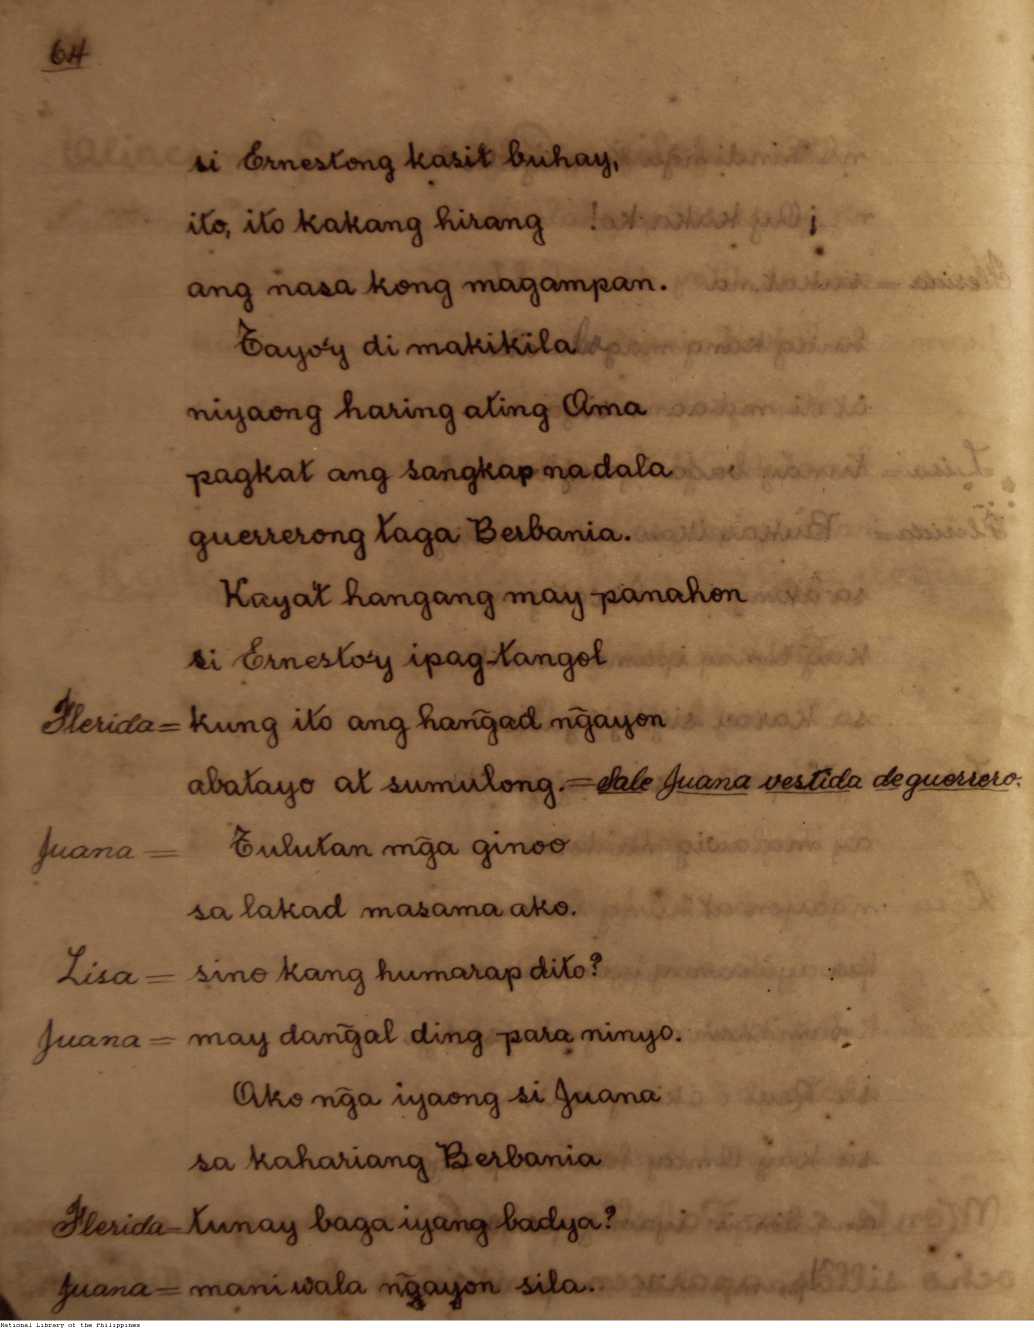 64
si Ernestong kasit buhay,
ito, ito kakang hirang !
ang nasa kong magampan.
Tayo'y di makikila
niyaong haring ating Ama
pagkat ang sangkap na dala
guerrerong taga Berbania.
Kaya't hangang may panahon
si Ernesto'y ipag-tangol
Flerida = kung ito ang hang̃ad ng̃ayon
abatayo at sumulong. = Sale Juana vestida de guerrero.
Juana = Tulutan mg̃a ginoo
sa lakad masama ako.
Lisa = sino kang humarap dito?
Juana = may dang̃al ding para ninyo.
Ako ng̃a iyaong si Juana
sa kahariang Berbania
Flerida = tunay baga iyang badya?
Juana = maniwala ng̃ayon sila.
National Library of the Philippines